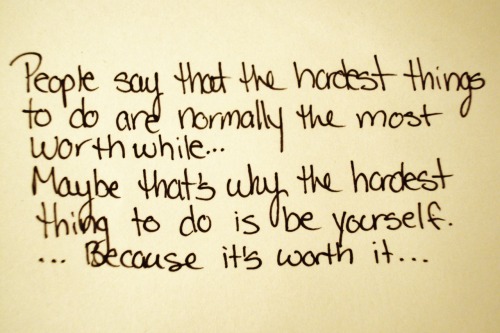 People say that the hardest things
to do are normally the most
worth while...
Maybe that's why the hardest
thing to do is be yourself.
... Because it's worth it...